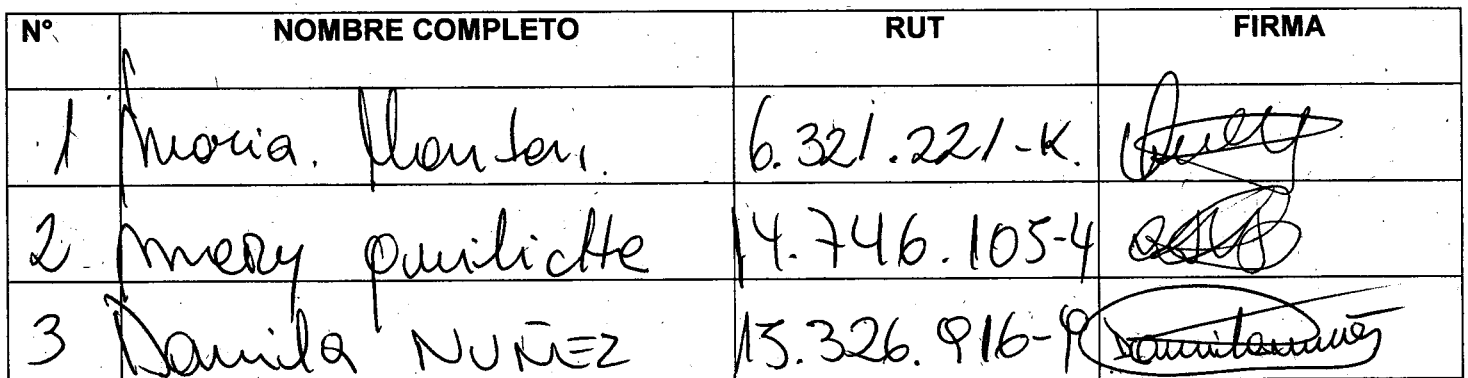 N° NOMBRE COMPLETO RUT FIRMA
1 Maria. 6.321.221-K.
2 Mery Quilichte 14.746.105-4
3 Damila NUÑEZ 15.326.916-9